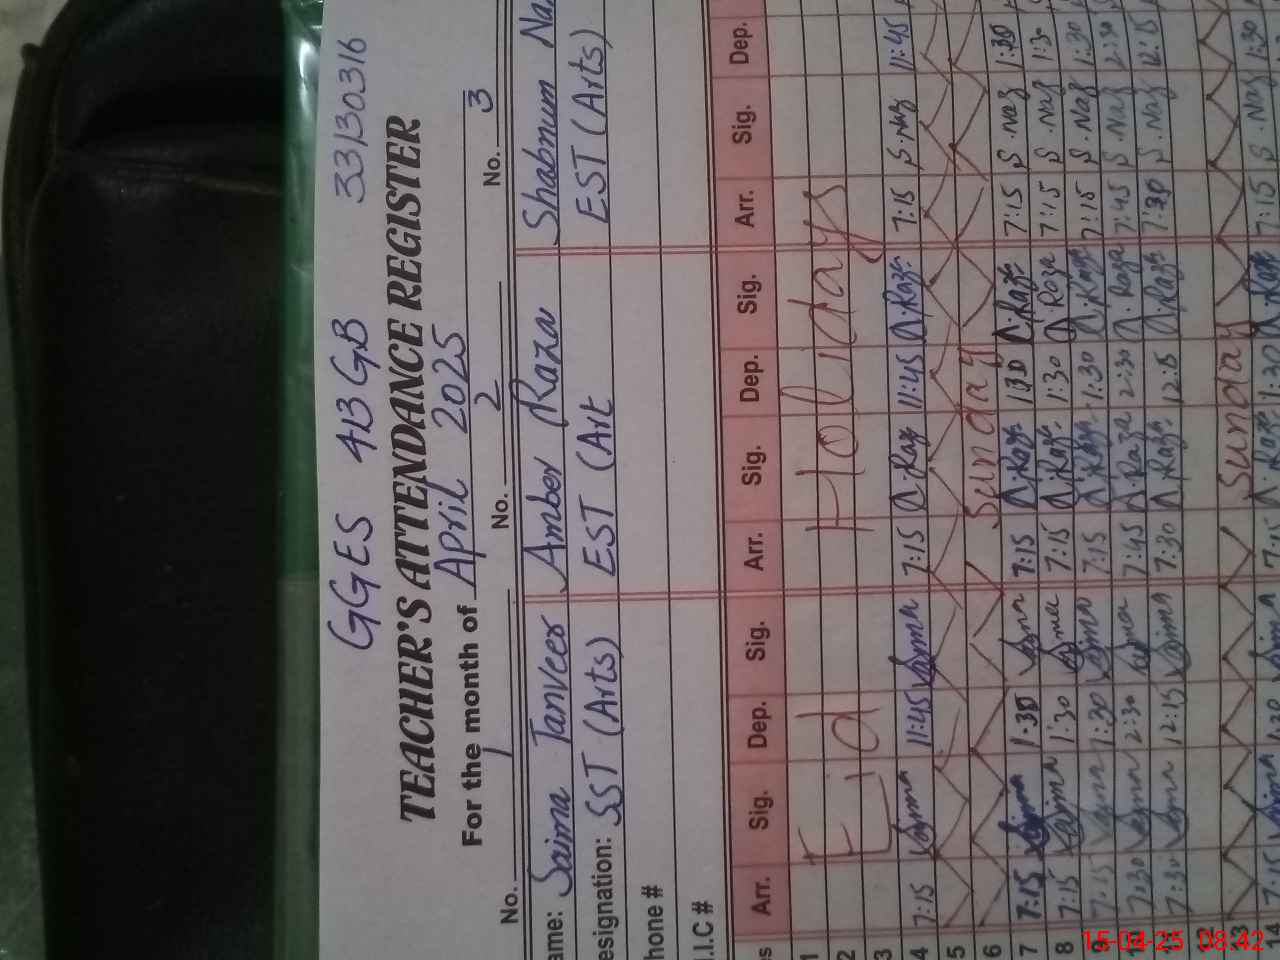 GGES 413 GB 33130316
TEACHER'S ATTENDANCE REGISTER
For the month of April 2025
No. 1 No. 2 No. 3
ame: Saima Tanveer Amber Raza Shabnum Na
esignation: SST (Arts) EST (Art EST (Arts)
hone #
.I.C #
es Arr. Sig. Dep. Sig. Arr. Sig. Dep. Sig. Arr. Sig. Dep.
1
2 Eid Holidays
3
4 7:15 Saima 11:45 Saima 7:15 A.Raz 11:45 A.Raza 7:15 S.Naz 11:45
5
6 Sunday
7 7:15 Saima 1:30 Saima 7:15 A.Raza 1:30 A.Raza 7:15 S.Naz 1:30
8 7:15 Saima 1:30 Saima 7:15 A.Raza 1:30 A.Raza 7:15 S.Naz 1:30
9 7:15 Saima 1:30 Saima 7:15 A.Raza 1:30 A.Raza 7:15 S.Naz 1:30
10 7:30 Saima 2:30 Saima 7:45 A Raza 2:30 A.Raza 7:45 S.Naz 2:30
7:30 Saima 12:15 Saima 7:30 A.Raza 12:15 A.Raza 7:30 S.Naz 12:15
12
13 Sunday
14 7:15 Saima 1:30 Saima 7:15 A.Raza 1:30 A.Raz 7:15 S.Naz 1:30
15-04-25 08:42